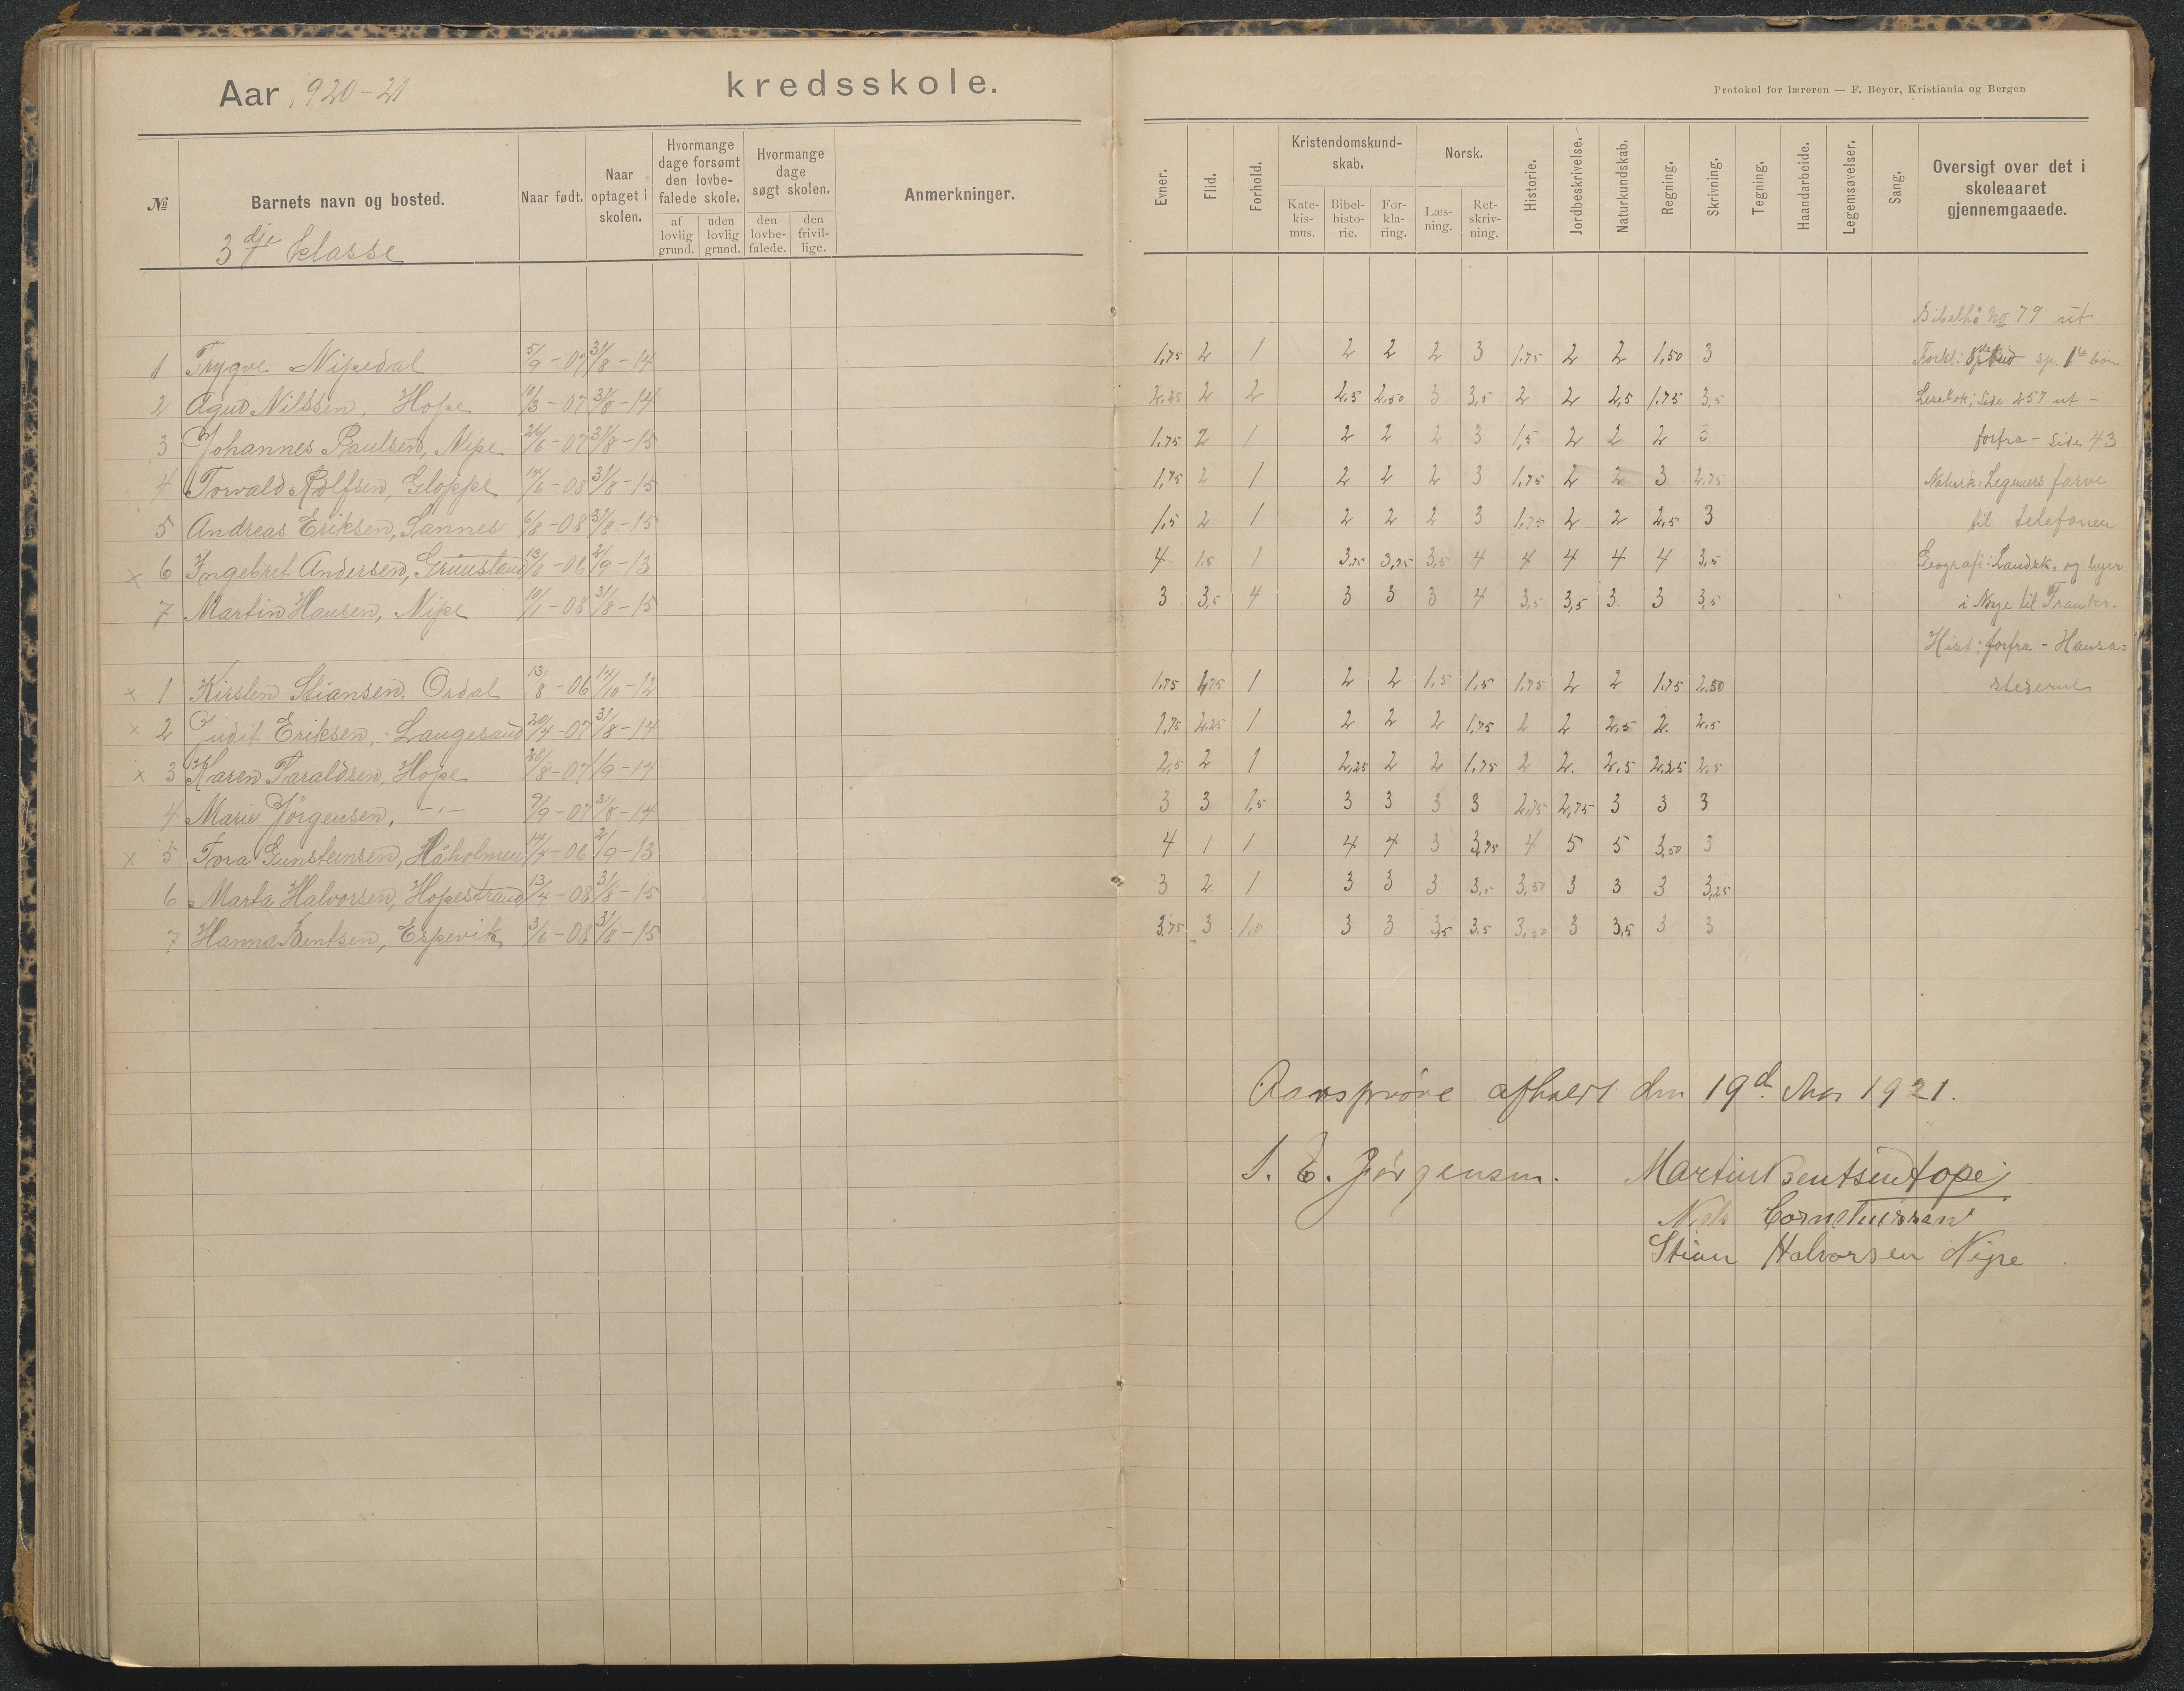 Aar 1920-21 kredsskole.
Protokol for læreren — F. Beyer, Kristiania og Bergen
№ Barnets navn og bosted. Naar født. Naar optaget i skolen. Hvormange dage forsømt den lovbefalede skole. af lovlig grund. uden lovlig grund. Hvormange dage søgt skolen. den lovbefalede. den frivillige. Anmerkninger.
Evner. Flid. Forhold. Kristendomskundskab. Katekismus. Bibelhistorie. Forklaring. Norsk. Læsning. Retskrivning. Historie. Jordbeskrivelse. Naturkundskab. Regning. Skrivning. Tegning. Haandarbeide. Legemsøvelser. Sang. Oversigt over det i skoleaaret gjennemgaaede.
3dje klasse
1 Trygve Nipedal 5/9-07 31/8-14 1,75 2 1 2 2 2 3 1,75 2 2 1,50 3
2 Agud Nilssen, Hope 10/3-07 31/8-14 2,25 2 2 2,5 2,50 3 3,5 2 2 2,5 1,75 3,5
3 Johannes Paulsen, Nipe 26/6-07 31/8-15 1,75 2 1 2 2 2 3 1,5 2 2 2 3
4 Torvald Rolfsen, Gloppe 14/6-08 31/8-15 1,75 2 1 2 2 2 3 1,75 2 2 3 2,75
5 Andreas Eriksen, Sannes 6/8-08 31/8-15 1,5 2 1 2 2 2 3 1,75 2 2 2,5 3
x 6 Ingebret Andersen, 13/8-06 2/9-13 4 1,5 1 3,75 3,75 3,5 4 4 4 4 4 3,5
7 Martin Hansen, Nipe 10/1-08 31/8-15 3 3,5 4 3 3 3 4 3,5 3,5 3 3 3,5
x 1 Kirsten Stiansen, Ordal 13/8-06 14/10-12 1,75 1,75 1 2 2 1,5 1,5 1,75 2 2 1,75 2,50
x 2 Judit Eriksen, Langesand 20/4-07 31/8-14 1,75 2,25 1 2 2 2 1,75 2 2 2,5 2. 2,5
x 3 Karen Taraldsen, Hope 28/8-07 1/9-14 2,5 2 1 2,25 2 2 1,75 2 2. 2,5 2,25 2,5
4 Marie Jörgensen, -"- 9/9-07 31/8-14 3 3 1,5 3 3 3 3 2,75 2,75 3 3 3
x 5 Tora Gunsteinsen, Håholmen 14/4-06 2/9-13 4 1 1 4 4 3 3,75 4 5 5 3,50 3
6 Marta Halvorsen, Hopestrand 13/4-08 31/8-15 3 2 1 3 3 3 3,5 3,50 3 3 3 3,25
7 Hanna Bentsen, Espevik 3/6-08 31/8-15 3,75 3 1,5 3 3 3,5 3,5 3,50 3 3,5 3 3
Bibelhi. No 79 ut
Forkl: sp. 1ste bön
Lesebok; Side 257 ut -
forfra - Side 43
Naturk: Legemers farve
til telefonen
Geografi: Landsk. og byer
i Nrge til Frankr.
Hist: forfra - Hansa-
stederne
Aarsprøve afholdt den 19d. Mai 1921.
S. E. Jörgensen. Martin Bentsen Hope
Stian Halvorsen Nipe